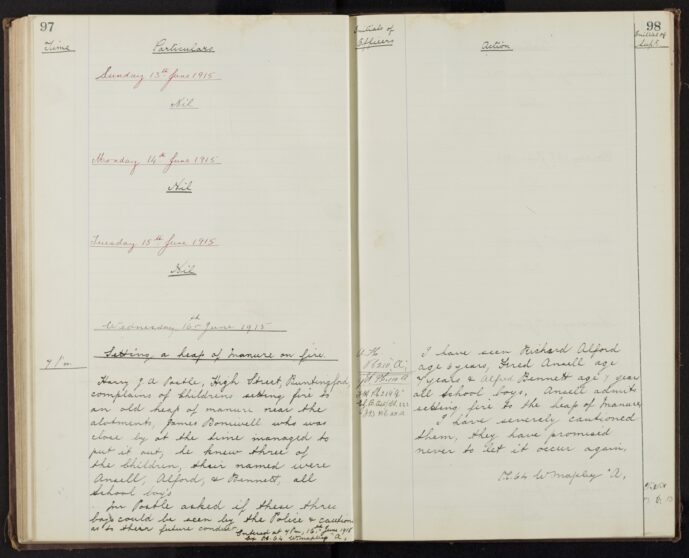 97
Time
Particulars
Sunday 13th June 1915
Nil
Monday 14th June 1915
Nil
Tuesday 15th June 1915
Nil
Wednesday 16th June 1915
Setting a heap of manure on fire.
7. P.m.
Harry J A Postle, High Street, Buntingford,
complains of Childrens setting fire to
an old heap of manure near the
alotments, James Bonnwell who was
close by at the time managed to
put it out, he knew three of
the Children, their named were
Ansell, Alford, & Bennett, all
School boys
Mr Postle asked if these three
boys could be seen by the Police & caution
as to their future conduct.
Entered at 9 P.m. 16th June 1915
by Pc. 64 W Mapley "A"
98
Initials of
Officers
Action
Initials of
Supt.
I have seen Richard Alford
age 8 years, Fred Ansell age
years & Alfred Bennett age 7 year
all School boys, Ansell admits
setting fire to the heap of Manure
I have severely cautioned
them, they have promised
never to let it occur again,
Pc. 64 W Mapley "A",